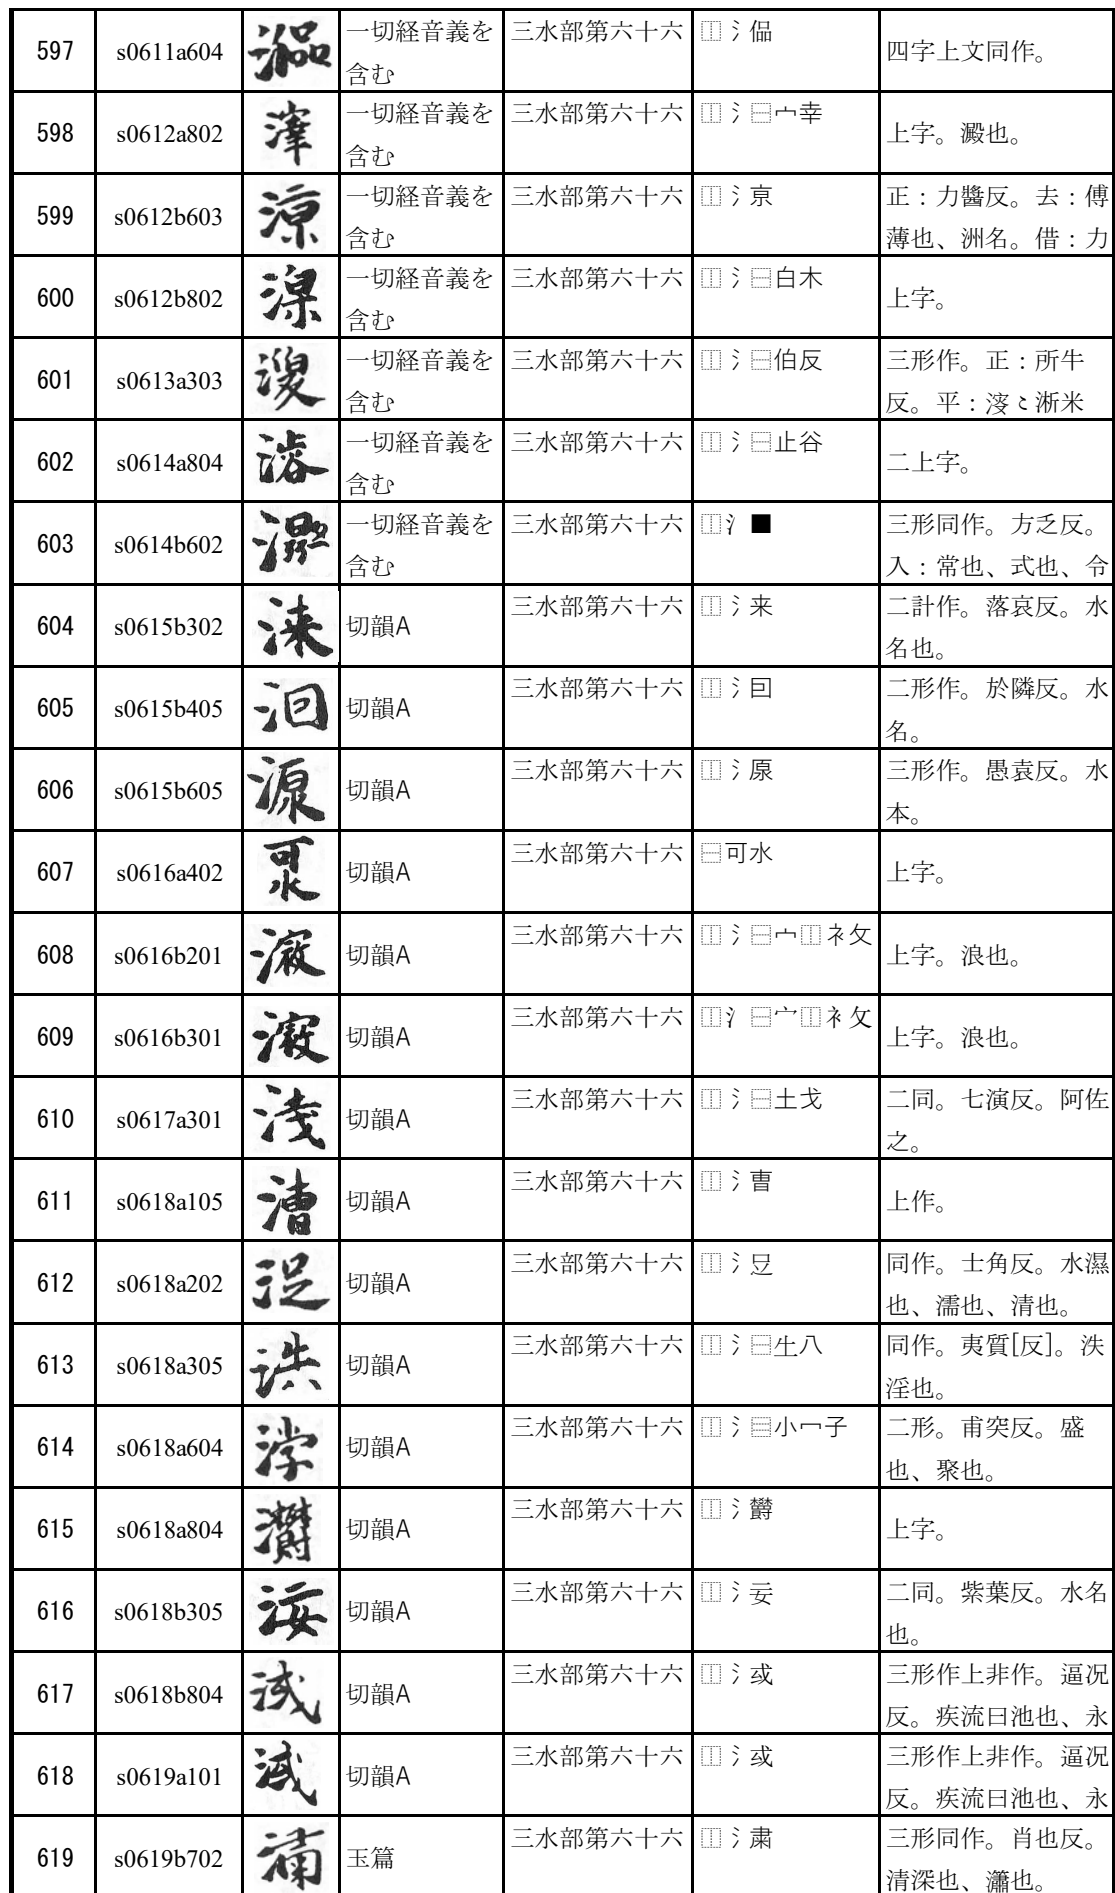 597 s0611a604 一切経音義を含む 三水部第六十六 ⿰氵偘 四字上文同作。
598 s0612a802 一切経音義を含む 三水部第六十六 ⿰氵⿱宀幸 上字。澱也。
599 s0612b603 一切経音義を含む 三水部第六十六 ⿰氵亰 正:力醬反。去:傅薄也、洲名。借:力
600 s0612b802 一切経音義を含む 三水部第六十六 ⿰氵⿱白木 上字。
601 s0613a303 一切経音義を含む 三水部第六十六 ⿰氵⿱伯反 三形作。正:所牛反。平:溲〻淅米
602 s0614a804 一切経音義を含む 三水部第六十六 ⿰氵⿱止谷 二上字。
603 s0614b602 一切経音義を含む 三水部第六十六 ⿰氵■ 三形同作。方乏反。入:常也、式也、令
604 s0615b302 切韻A 三水部第六十六 ⿰氵来 二計作。落哀反。水名也。
605 s0615b405 切韻A 三水部第六十六 ⿰氵囙 二形作。於隣反。水名。
606 s0615b605 切韻A 三水部第六十六 ⿰氵原 三形作。愚袁反。水本。
607 s0616a402 切韻A 三水部第六十六 ⿱可水 上字。
608 s0616b201 切韻A 三水部第六十六 ⿰氵⿱宀⿰礻攵 上字。浪也。
609 s0616b301 切韻A 三水部第六十六 ⿰氵⿱宀⿰衤攵 上字。浪也。
610 s0617a301 切韻A 三水部第六十六 ⿰氵⿱土戈 二同。七演反。阿佐之。
611 s0618a105 切韻A 三水部第六十六 ⿰氵曺 上作。
612 s0618a202 切韻A 三水部第六十六 ⿰氵𤴓 同作。士角反。水濕也、濡也、清也。
613 s0618a305 切韻A 三水部第六十六 ⿰氵⿱𠂒八 同作。夷質[反]。泆淫也。
614 s0618a604 切韻A 三水部第六十六 ⿰氵⿳小冖子 二形。甫突反。盛也、聚也。
615 s0618a804 切韻A 三水部第六十六 ⿰氵欝 上字。
616 s0618b305 切韻A 三水部第六十六 ⿰氵妛 二同。紫葉反。水名也。
617 s0618b804 切韻A 三水部第六十六 ⿰氵或 三形作上非作。逼況反。疾流曰池也、永
618 s0619a101 切韻A 三水部第六十六 ⿰氵或 三形作上非作。逼況反。疾流曰池也、永
619 s0619b702 玉篇 三水部第六十六 ⿰氵粛 三形同作。肖也反。清深也、灑也。